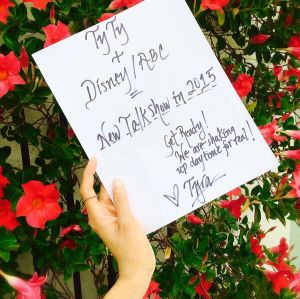 TyTy
+
Disney/ABC
=
New Talk Show in 2015
Get Ready!
We are shaking
up daytime for real!
♡ Tyra